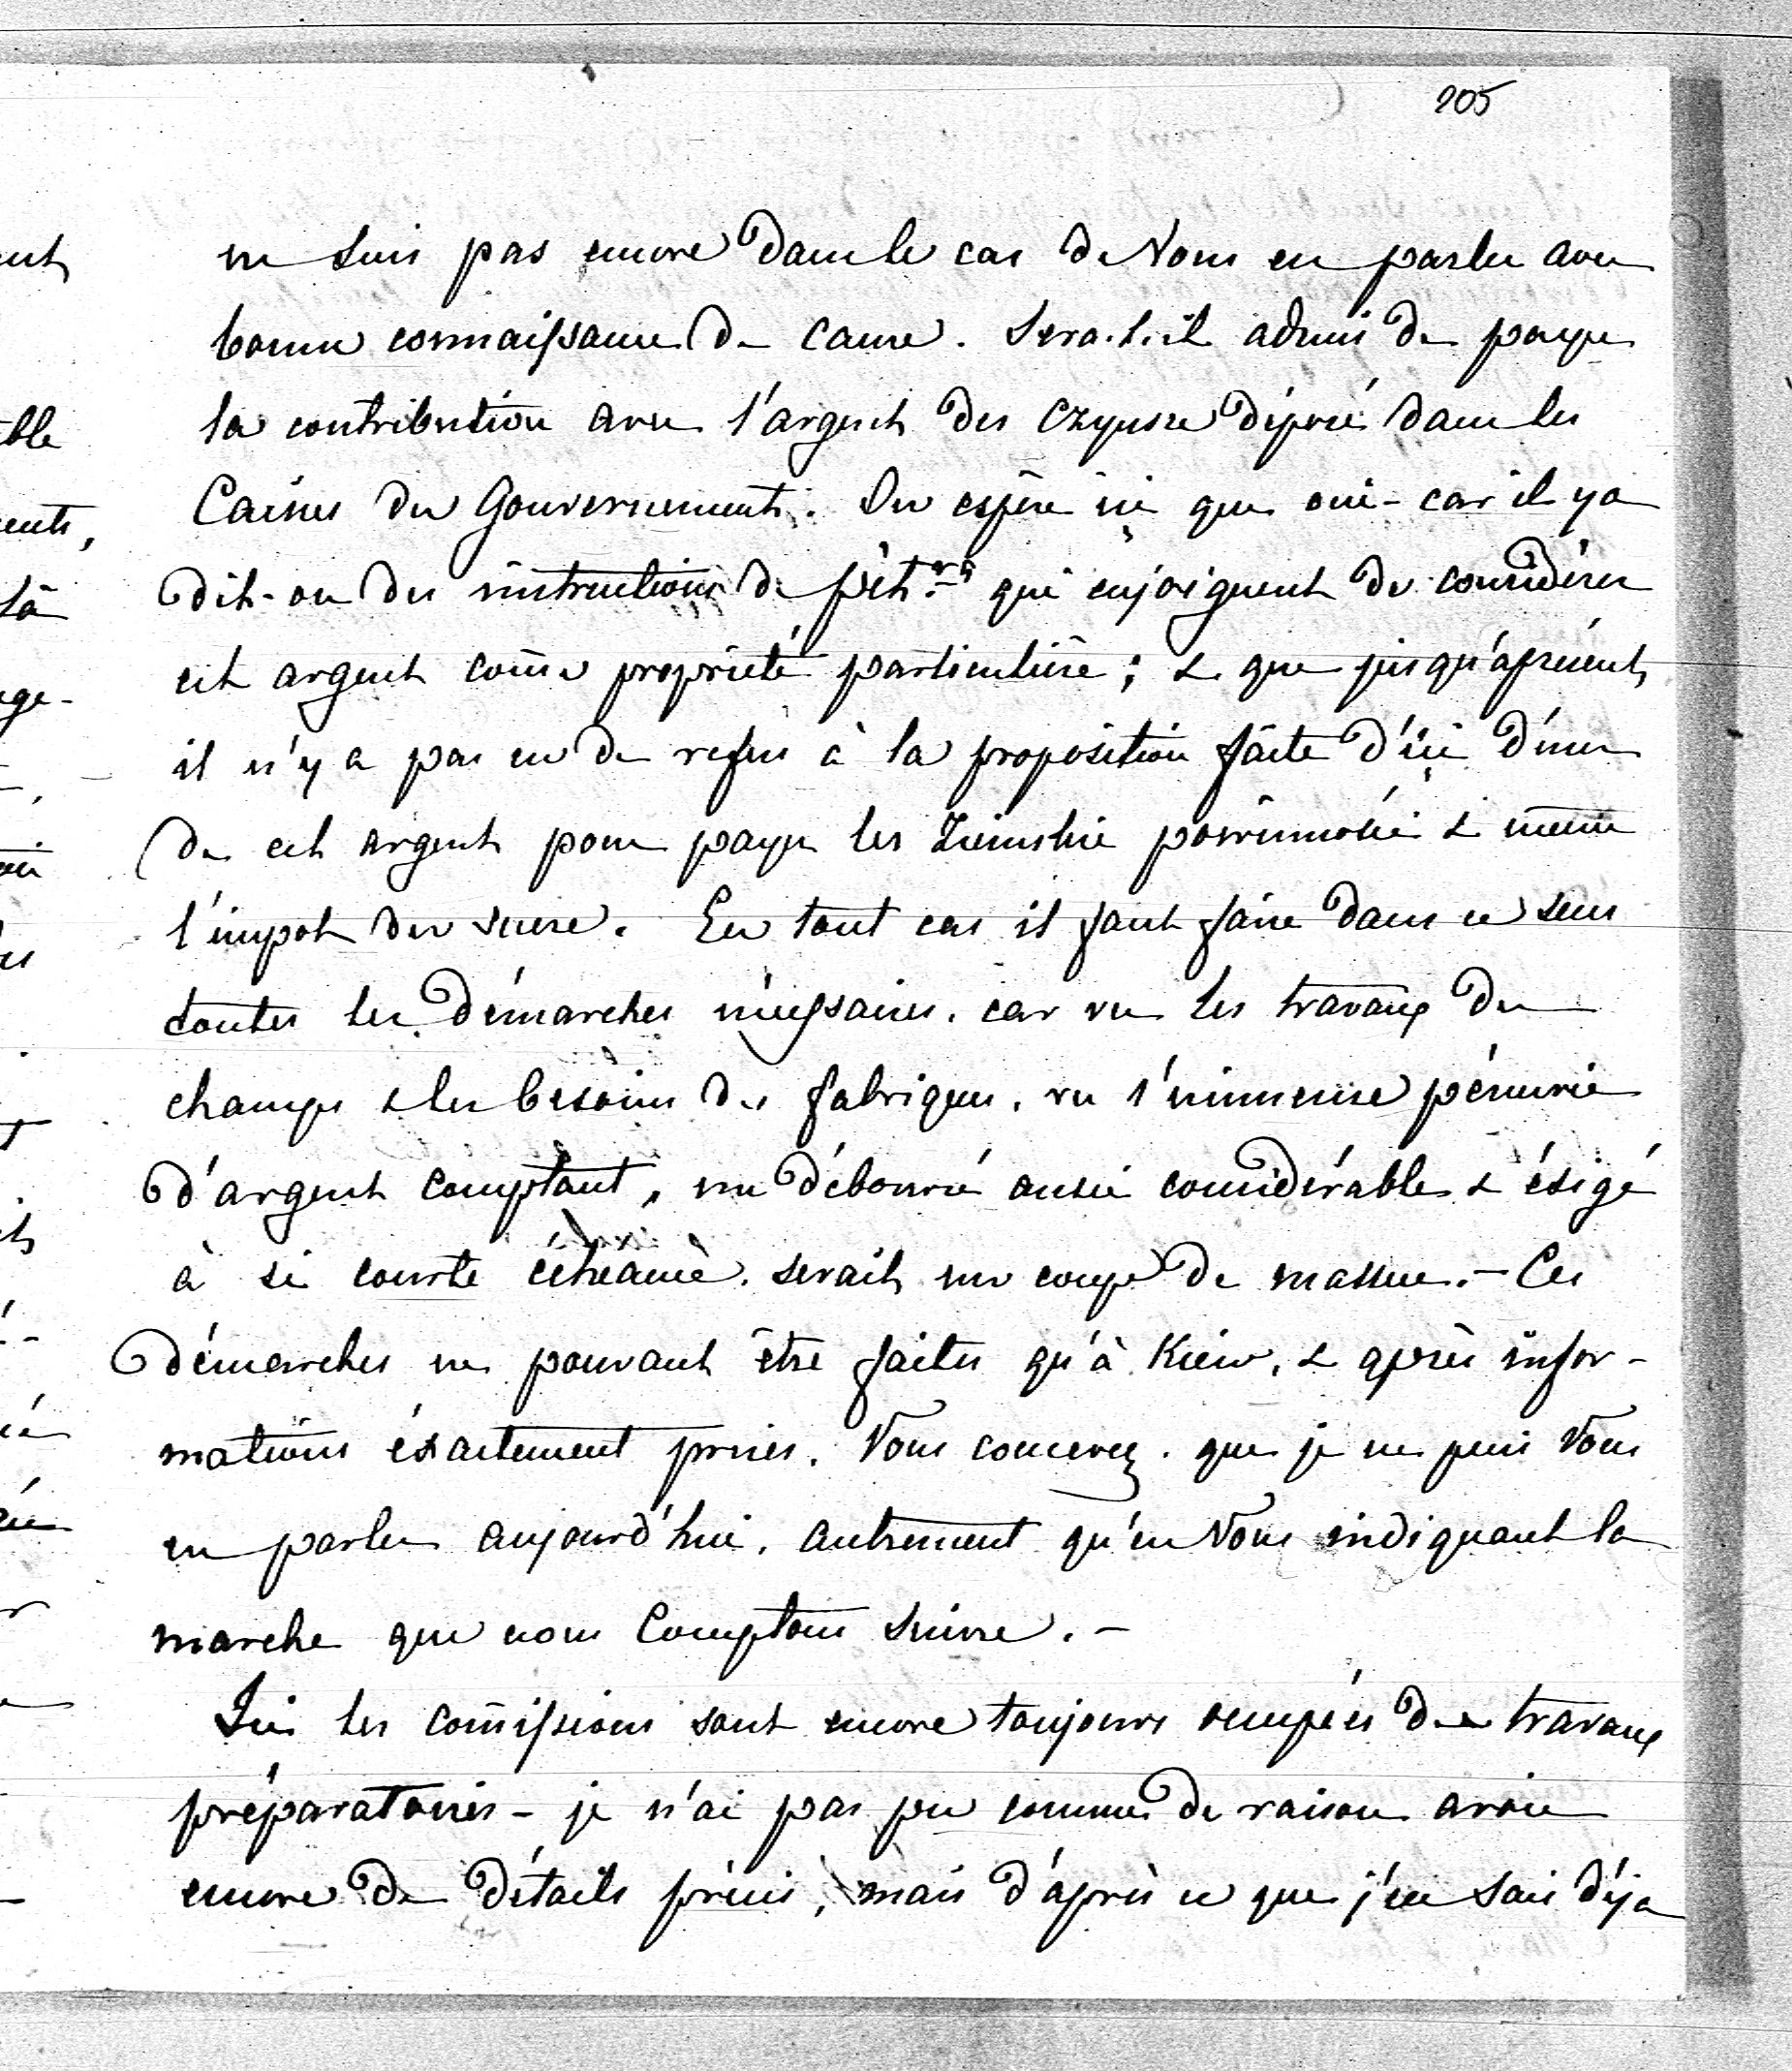 205
ne suis pas encore dans le cas de Vous en parler avec
bonne connaissance de cause. Sera-t-il admis de payer
la contribution avec l'argent des Czynsze déposé dans les
Caisses du Gouvernement. On espère ici que oui - car il y a
dit-on des instructions de Pét.rg qui enjoignent de considérer
cet argent comē propriété particulière; & que jusqu'aprésent
il n'y a pas eu de refus à la proposition faite d'ici d'user
de cet argent pour payer les Ziemskie powinnoście & même
l'impot du sucre. En tout cas il faut faire dans ce sens
toutes les démarches nécessaires, car vu les travaux de
champs & les besoins des fabriques, vu l'immense pénurie
d'argent comptant, un déboursé aussi considérable & éxigé
à si courte échéance, serait un coup de massue. - Ces
démarches ne pouvant être faites qu'à Kiew, & après infor-
mations éxactement prises, Vous concevez que je ne puis Vous
en parler aujourd'hui, autrement qu'en Vous indiquant la
marche que nous Comptons suivre. -
Ici les com̄issions sont encore toujours occupées de travaux
préparatoires - je n'ai pas pu comme de raison avoir
encore de détails précis, mais d'après ce que j'en sais déja
ent
able
ents,
là
age-